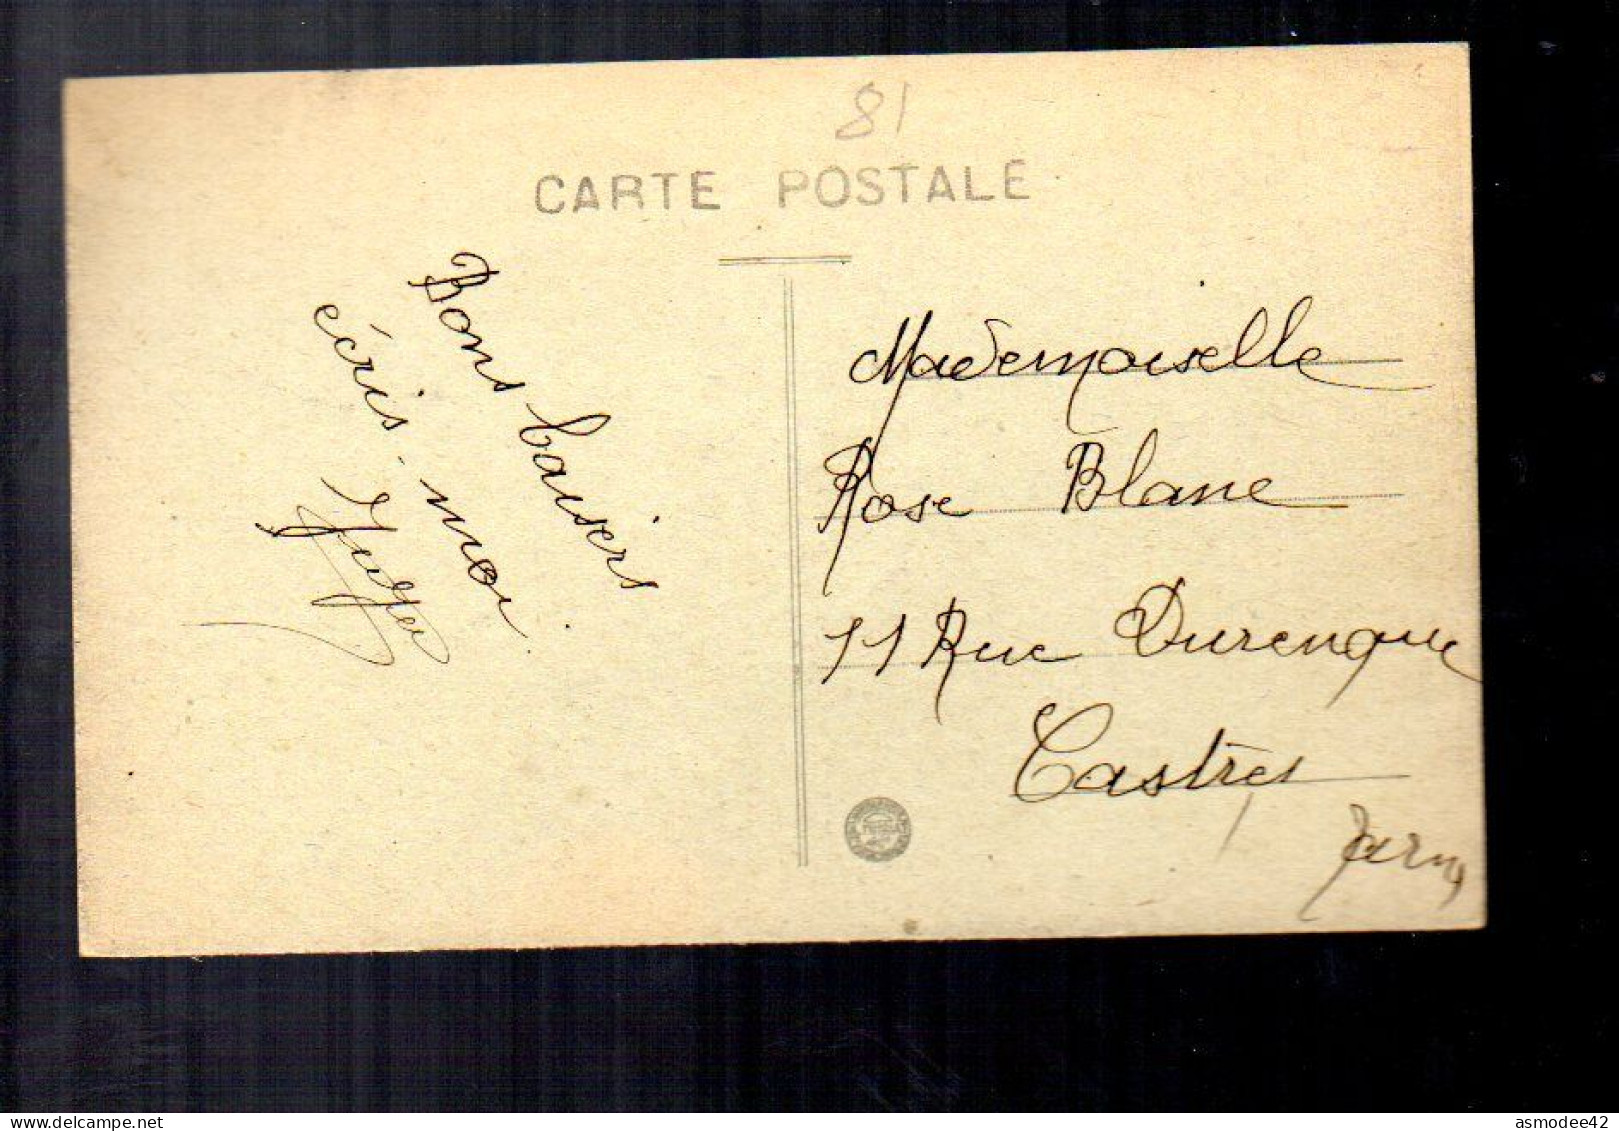 81
CARTE POSTALE
Bons baisers
écris-moi.
Mademoiselle
Rose Blanc
11 Rue Durenque
Castres
Tarn
asmodee42